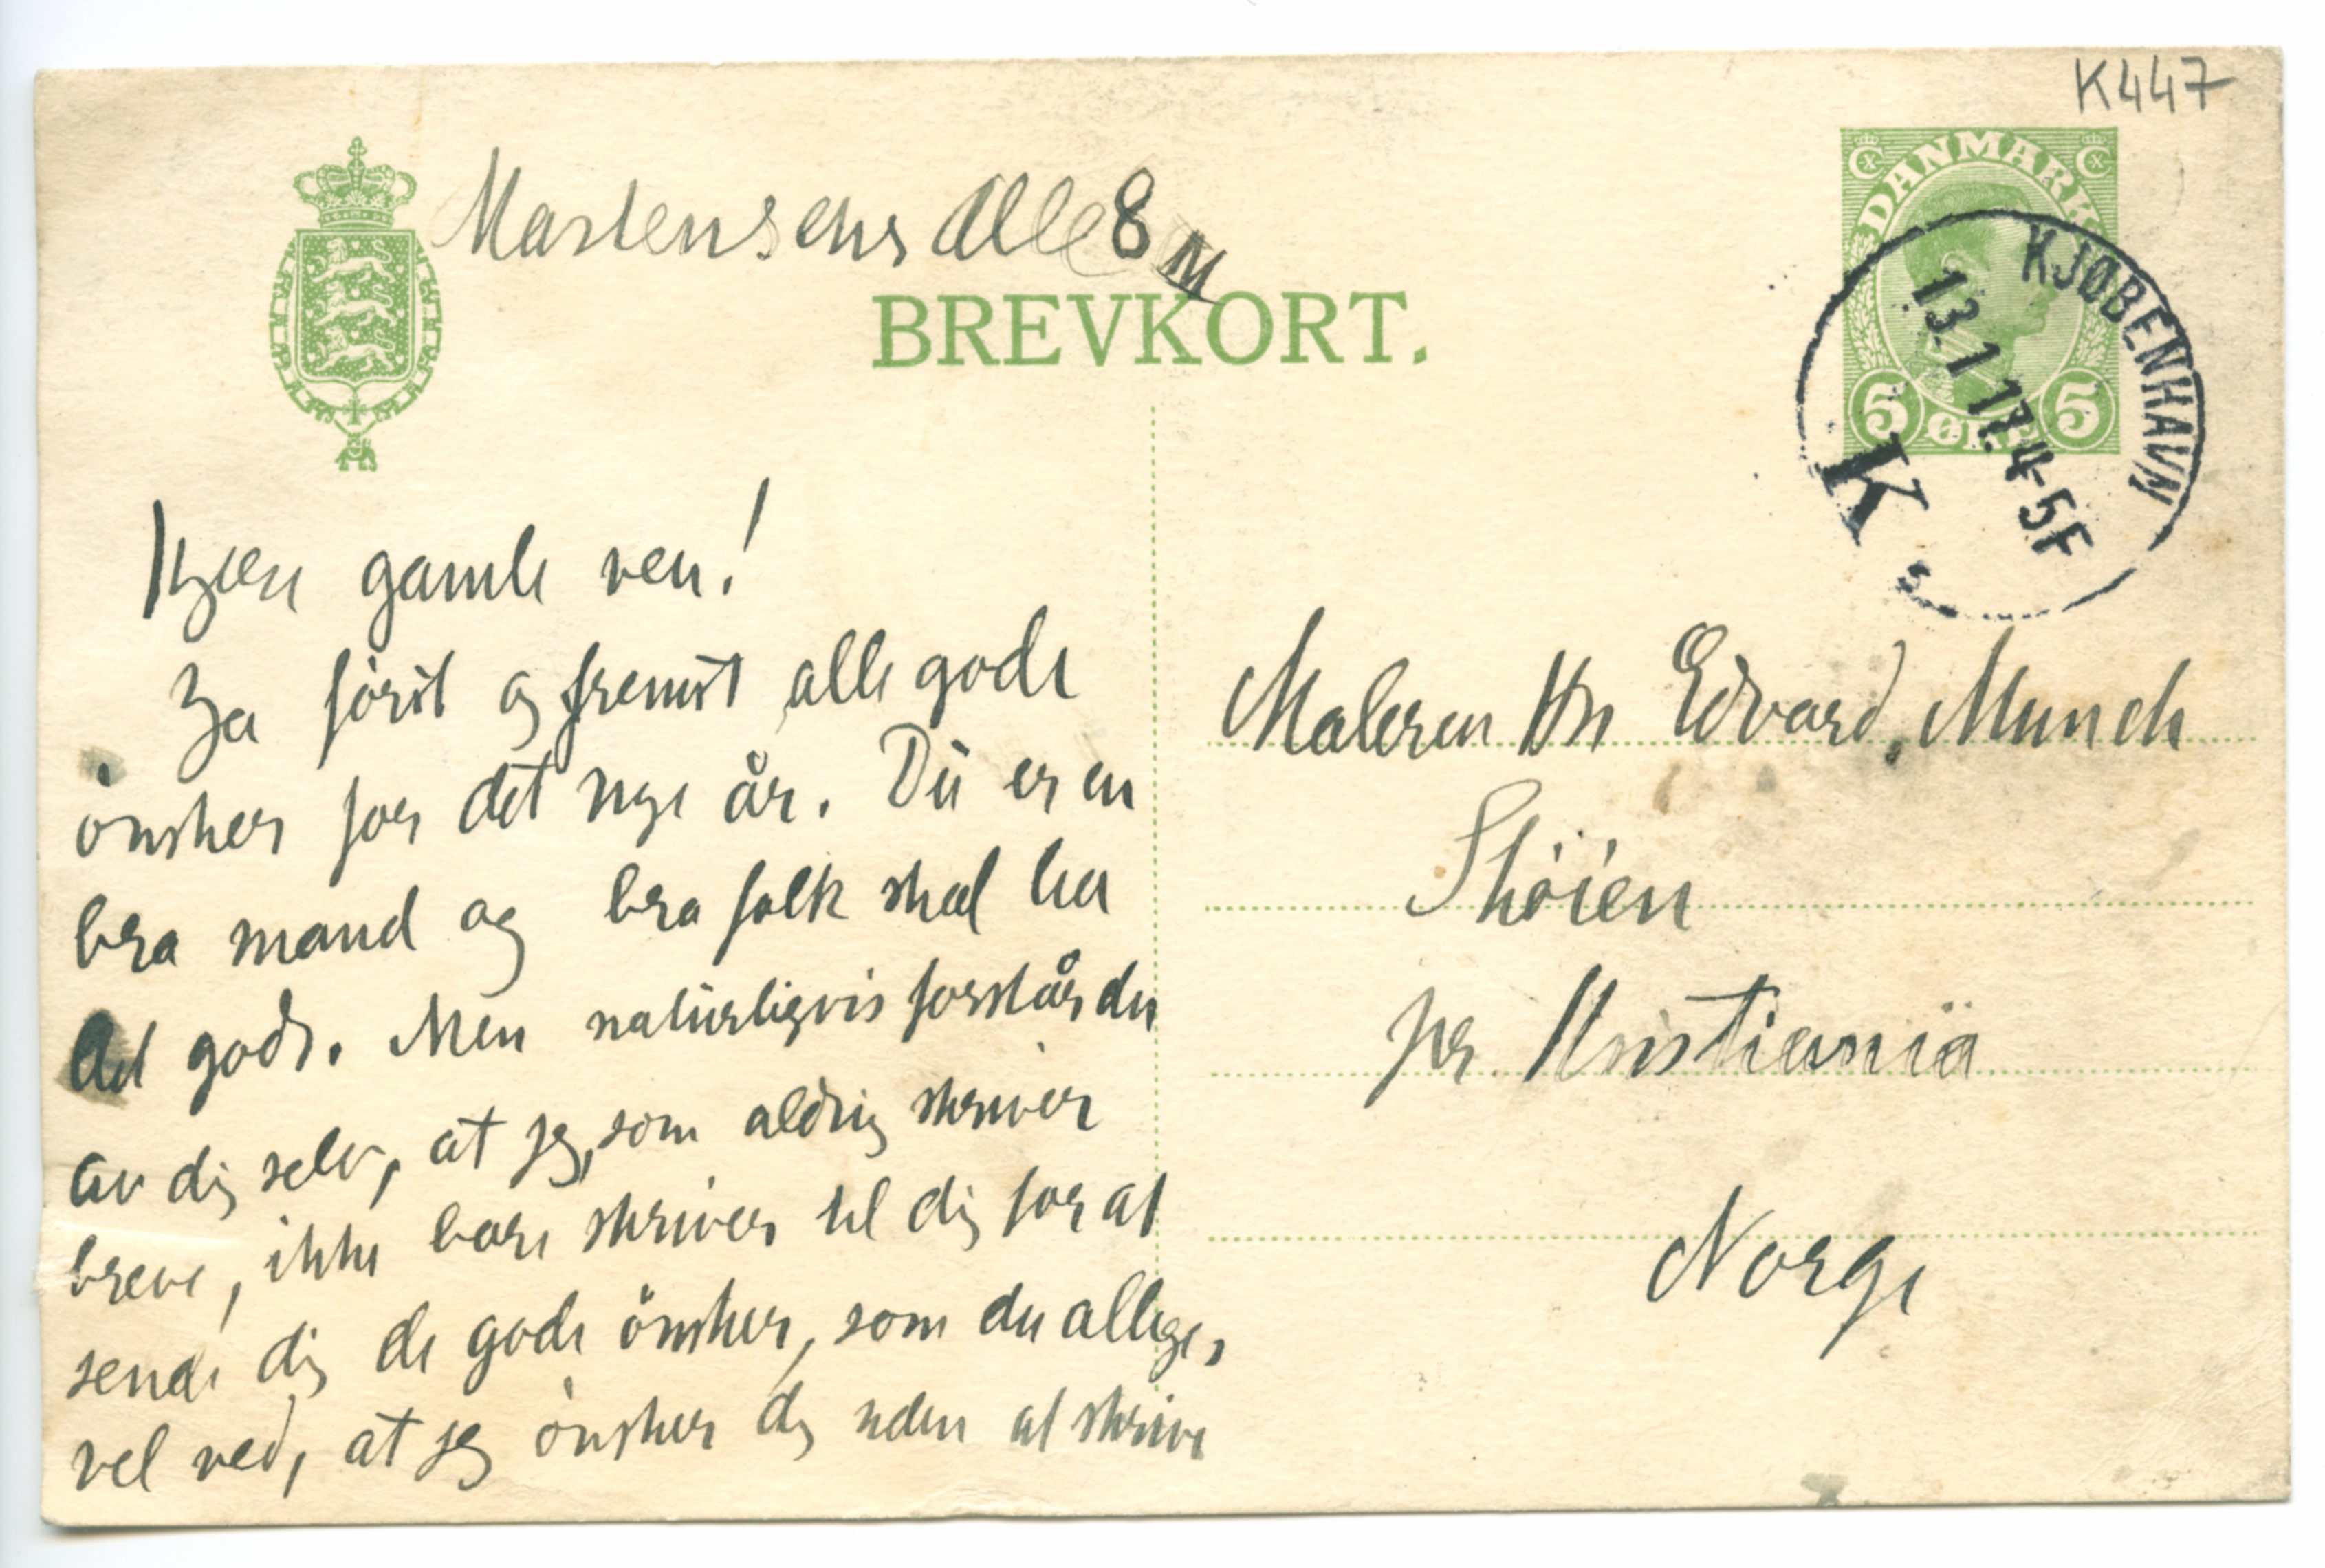 K447
Martensens Alle 8 M
BREVKORT.
DANMARK
5 ØRE 5
KJØBENHAVN
13.1.17. 4-5F
K
Kjære gamle ven!
Ja først og fremst alle gode
ønsker for det nye år. Du er en
bra mand og bra folk skal ha
det godt. Men naturligvis forstår du
av dig selv, at jeg, som aldrig skriver
breve, ikke bare skriver til dig for at
sende dig de gode ønsker, som du allige,
vel ved, at jeg ønsker dig uden at skrive
Maleren Hr Edvard Munch
Skøien
pr. Kristiania
Norge